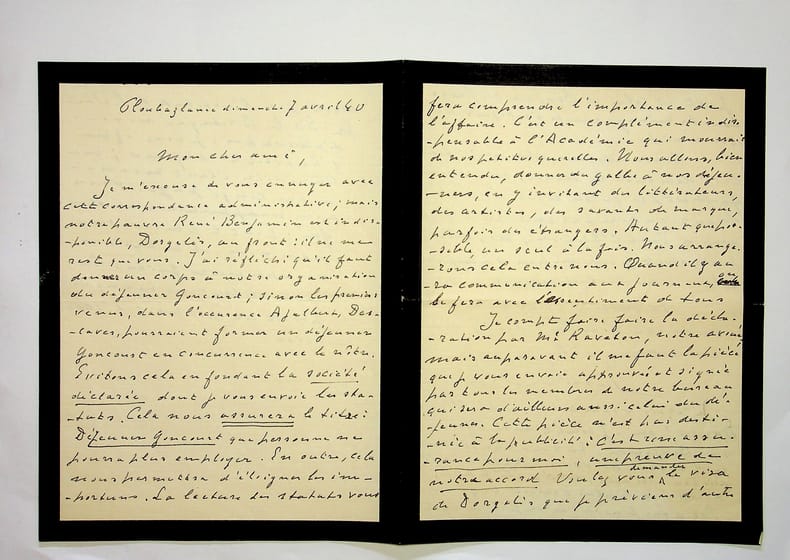 Ploubazlanec dimanche 7 avril 40
Mon cher ami,
Je m'excuse de vous ennuyer avec
cette correspondance administrative, mais
notre pauvre René Benjamin est indis-
-ponible, Dorgelès, au front : il ne me
reste que vous. J'ai réfléchi qu'il faut
donner un corps à notre organisation
du déjeuner Goncourt ; sinon les premiers
venus, dans l'occurence Ajalbert, Des-
-caves, pourraient former un déjeuner
Goncourt en concurrence avec le nôtre.
Evitons cela en fondant la société
déclarée dont je vous envoie les sta-
-tuts. Cela nous assurera le titre :
Déjeuner Goncourt que personne ne
pourra plus employer. En outre, cela
nous permettra d'éloigner les im-
-portuns. La lecture des statuts vous
fera comprendre l'importance de
l'affaire. C'est un complément indis-
-pensable à l'Académie qui mourrait
de nos petites querelles. Nous allons, bien
entendu, donner du galbe à nos déjeu-
-ners, en y invitant des littérateurs,
des artistes, des savants de marque,
parfois des étrangers. Autant que pos-
-sible, un seul à la fois. Nous arrange-
-rons cela entre nous. Quand il y au-
-ra communication aux journaux, on
le fera avec l'assentiment de tous
Je compte faire faire la décla-
-ration par Me Ravaton, notre avoué
mais auparavant il me faut la pièce
que je vous envoie approuvée et signée
par tous les membres de notre bureau
qui sera d'ailleurs aussi celui du dé-
-jeuner. Cette pièce n'est pas desti-
-née à la publicité. C'est une assu-
-rance pour moi, une preuve de
notre accord Voulez vous demander le visa
de Dorgelès que je préviens d'autre